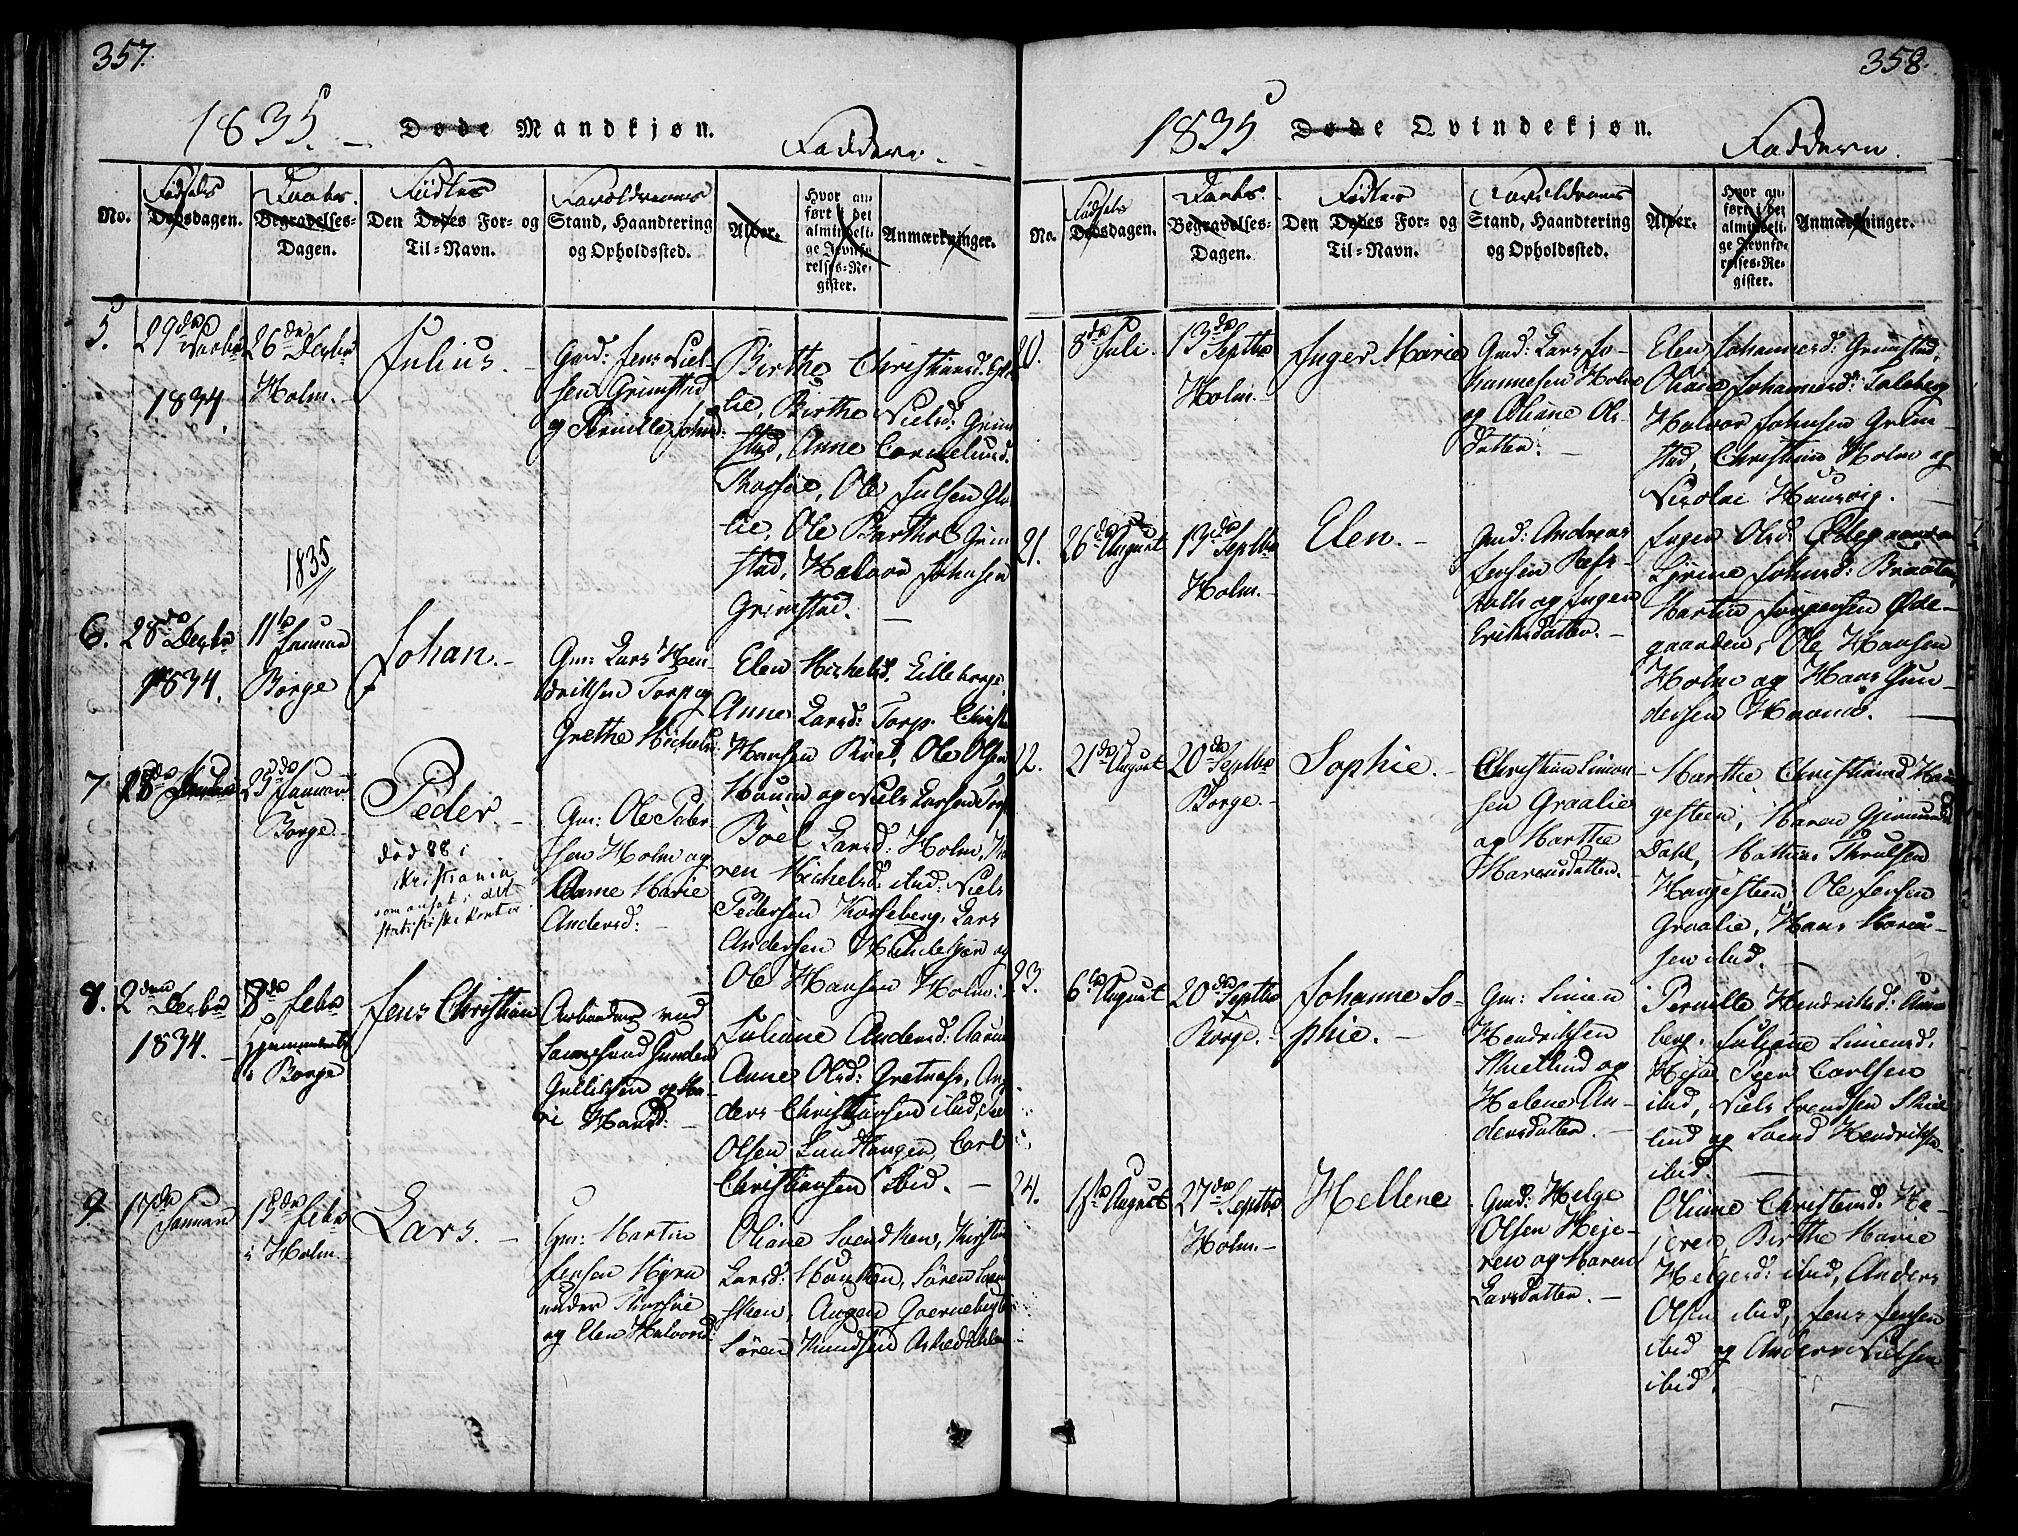 357.
1835. Døde Mandkjøn. Faddere.
No.
Fødsels Dødsdagen.
Daabs Begravelses-
Dagen.
Fødtes
Den Dødes For- og
Til-Navn.
Forældrenes
Stand, Haandtering
og Opholdssted.
Alder.
Hvor an-
ført i det
almindeli-
ge Jevnfø-
relses-Re-
gister.
Anmærkninger.
5.
29de Novbr
1834
26de Decbr
Holm.
Julius.
Gmd: Jens Niel-
sen Grimstad
og Pernille Johnsd:
Birthe Christiansd:
lie, Birthe Nielsd: Grim
stad, Anne Corneliusd.
Thorsøe, Ole Julsen Glo-
lie, Ole Barthol Grim
stad, Halvor Johnsen
Grimstad.
1835
6.
28de Decbr
1834.
11te Januar
Borge
Johan.
Gm: Lars Hen-
driksen Torp og
Grethe Michelsd:
Elen Michelsd. Lilleborge,
Anne Larsd: Torp. Christen
Hansen Rød, Ole Olsen
Hauen og Niels Larsen Torp
7.
28de
25de Januar
Borge
Peder.
død 88 i
Kristiania
som ansat i det
statistiske Kontor
Gm: Ole Peder-
sen Holm og
Anne Marie
Andersd:
Boel Larsd: Holm, Ka
ren Michelsd. ibid: Niels
Pedersen Korseberg, Lars
Andersen Hundesjøe og
Ole Hansen Holm:
8.
2den Decbr
1834.
8de Febr
Hjemmedøbt
i Borge
Jens Christian
Arbeider ved
Sannesund Gunder
Gullichsen og Ma-
ri Hansd:
Juliane Andersd: Aarum
Anne Olsd: Gretnæs, An
ders Christiansen ibid,
Olsen Lundhaugen, Carl
Christiansen ibid.
9.
17de Januar
15de Febr
i Holm.
Lars.
Gm: Martin
Jensen Myra
under Thorsøe
og Elen Halvorsd:
Oliane Svendsken, Kirstine
Larsd: Hansken, Søren
sken, Augen Hjernebugt
Søren Knudsen Askedahlen
358.
1835 Døde Qvindekjøn. Faddere.
No.
Fødsels
Dødsdagen.
Daabs.
Begravelses-
Dagen.
Fødtes
Den Dødes For- og
Til-Navn.
Forældrenes
Stand, Haandtering
og Opholdssted.
Alder.
Hvor an-
ført i det
almindeli-
ge Jevnfø-
relses-Re-
gister.
Anmærkninger.
20.
8de Juli.
13de Septbr
Holm.
Inger Marie
Gmd: Lars Jo-
hannesen Holm
og Oliane Ols-
datter.
Elen Johannesd: Grimstad,
Oliane Johannesd: Soleberg
Halvor Johnsen Grim-
stad, Christian Holm og
Nicolai Haugvig.
21.
26de August
13de Septbr
Holm.
Elen.
Gmd: Andreas
Jensen Refs-
holt og Inger
Eriksdatter.
Inger Olsd: Ødegaarden
Lovise Johnsd: Braaten,
Martin Jørgensen Øde-
gaarden, Ole Hansen
Holm og Hans Gun-
dersen Hauen.
22.
21de August
20de Septbr
Borge.
Sophie.
Christian Simon-
sen Graalie
og Marthe
Marcusdatter.
Marthe Christiansd Hau-
gesteen, Maren Gjermundsd
Dahl, Mathias Thrulsen
Haugesteen, Ole Jensen
Graalie, Hans Marcu-
sen ibid.
23.
6te August
20de Septbr
Borge.
Johanne So-
phie.
Gm: Simen
Hendriksen
Skiellund og
Helene An-
dersdatter.
Pernille Hendriksd:
berg. Juliane Simensd.
Peer Carlsen
ibid, Niels Svendsen Skiel
lund og Svend Hendriksen
ibid.
24.
1ste August
27de Septbr
Holm.
Hellene
Gmd: Helge
Olsen Heje-
ren og Maren
Larsdatter.
Oliane Christensd. He-
jeren, Birthe Marie
Helgesd: ibid, Anders
Olsen ibid, Jens Jensen
ibid og Anders Nielsen
ibid.